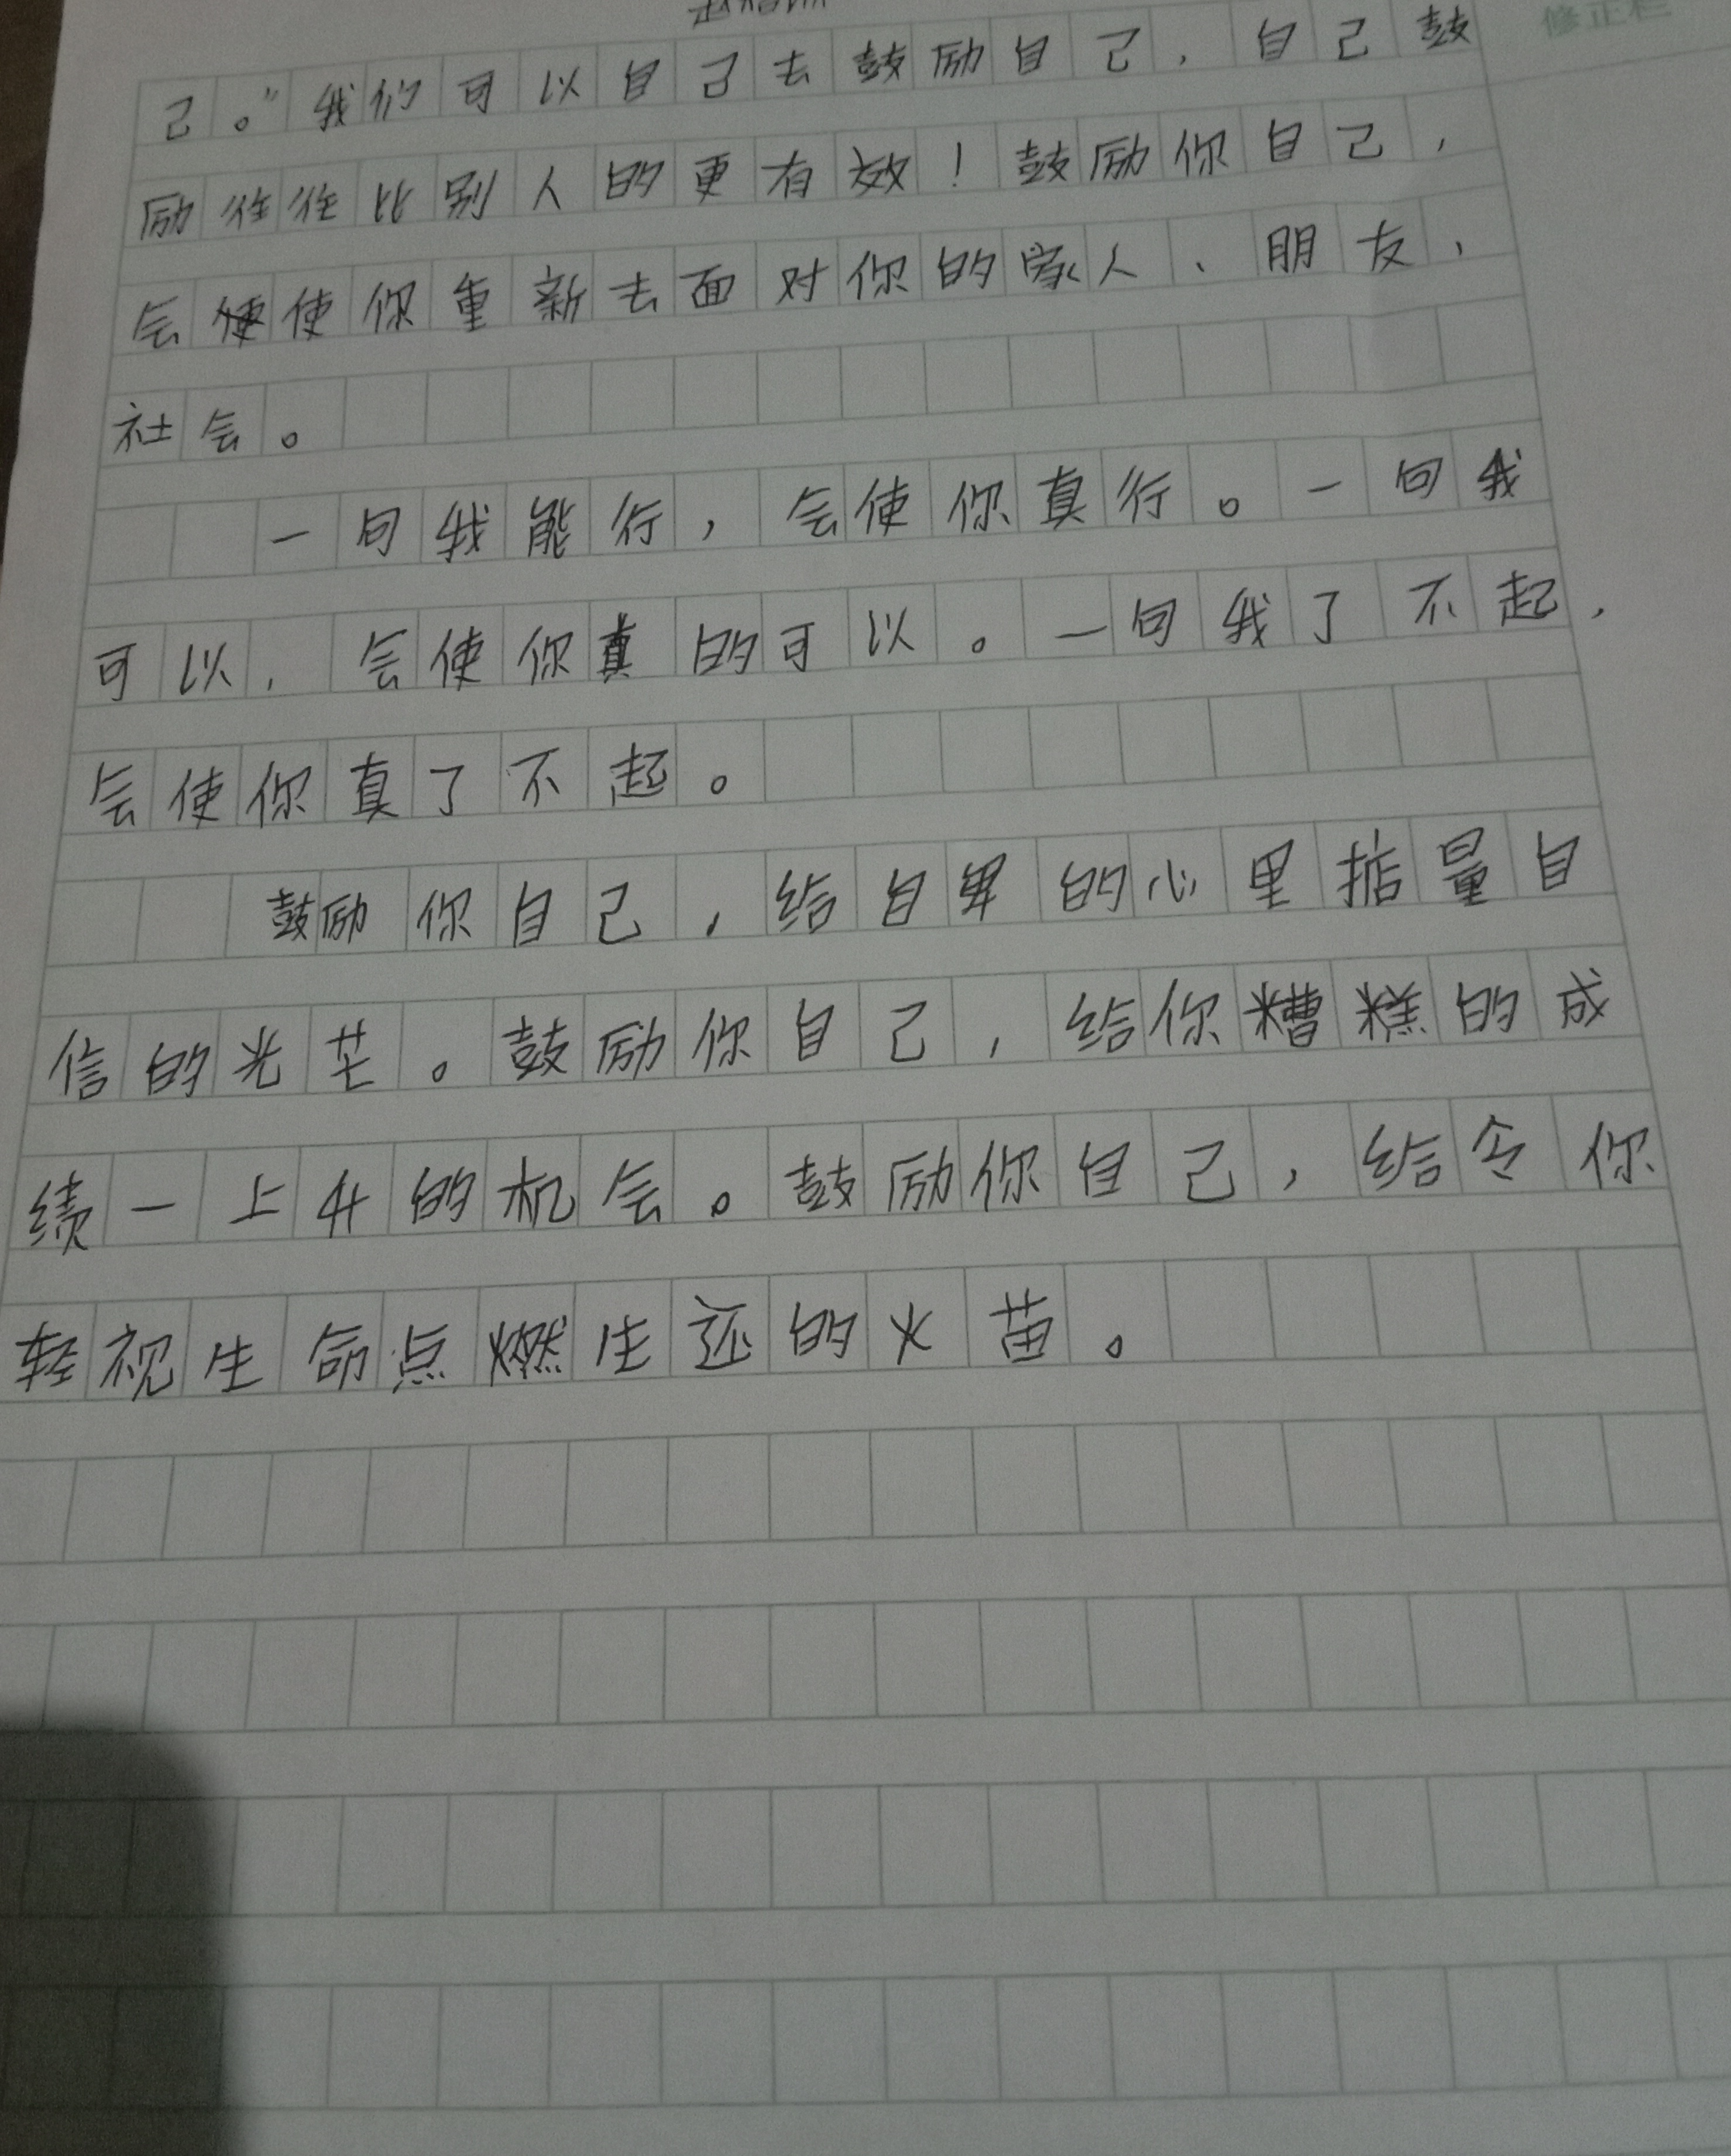 修正栏
己。”我们可以自己去鼓励自己，自己鼓
励往往比别人的更有效！鼓励你自己，
会使你重新去面对你的家人、朋友、
社会。
一句我能行，会使你真行。一句我
可以，会使你真的可以。一句我了不起，
会使你真了不起。
鼓励你自己，给自卑的心里掂量自
信的光芒。鼓励你自己，给你糟糕的成
绩一上升的机会。鼓励你自己，给令你
轻视生命点燃生还的火苗。